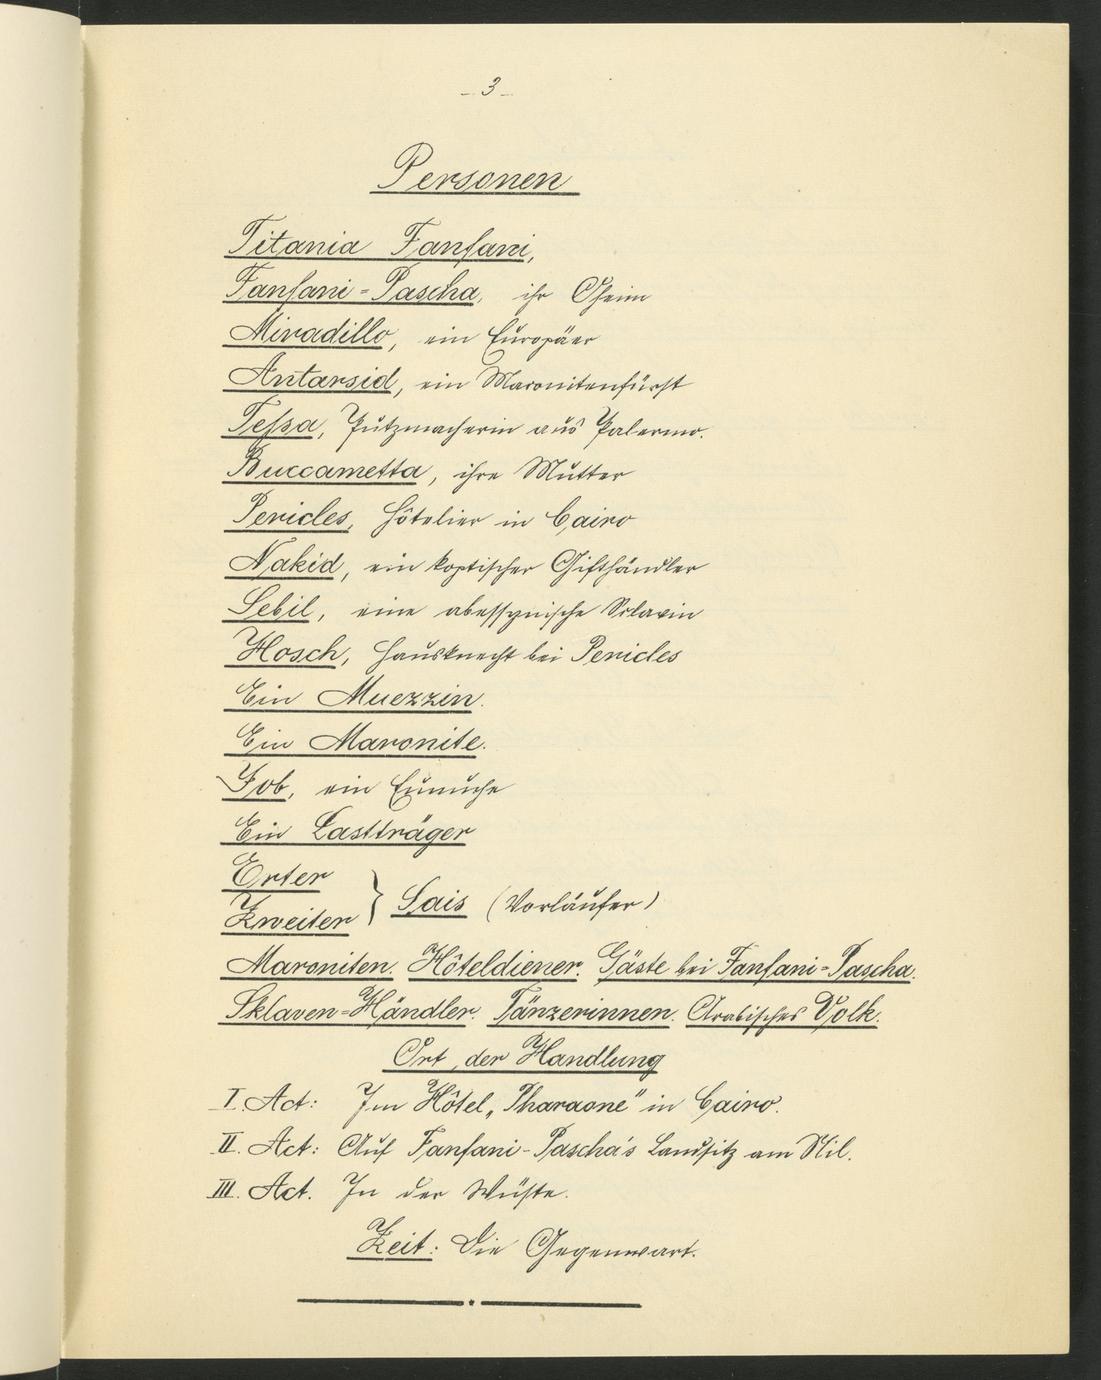 - 3 -
Personen
Titania Fanfani,
Fanfani-Pascha, ihr Oheim
Miradillo, ein Europäer
Antarsid, ein Maronitenfürst
Tessa, Putzmacherin aus Palermo.
Buccametta, ihre Mutter
Pericles, Hôtelier in Cairo
Nakid, ein koptischer Gifthändler
Sebil, eine abessynische Sclavin
Hosch, Hausknecht bei Pericles
Ein Muezzin.
Ein Maronite.
Job, ein Eunuche
Ein Lastträger
Erter
Zweiter } Sais (Vorläufer)
Maroniten. Hôteldiener. Gäste bei Fanfani-Pascha.
Sklaven-Händler. Tänzerinnen. Arabisches Volk.
Ort der Handlung
I. Act: Im Hôtel „Pharaone" in Cairo.
II. Act: Auf Fanfani-Pascha's Landsitz am Nil.
III. Act. In der Wüste.
Zeit: Die Gegenwart.